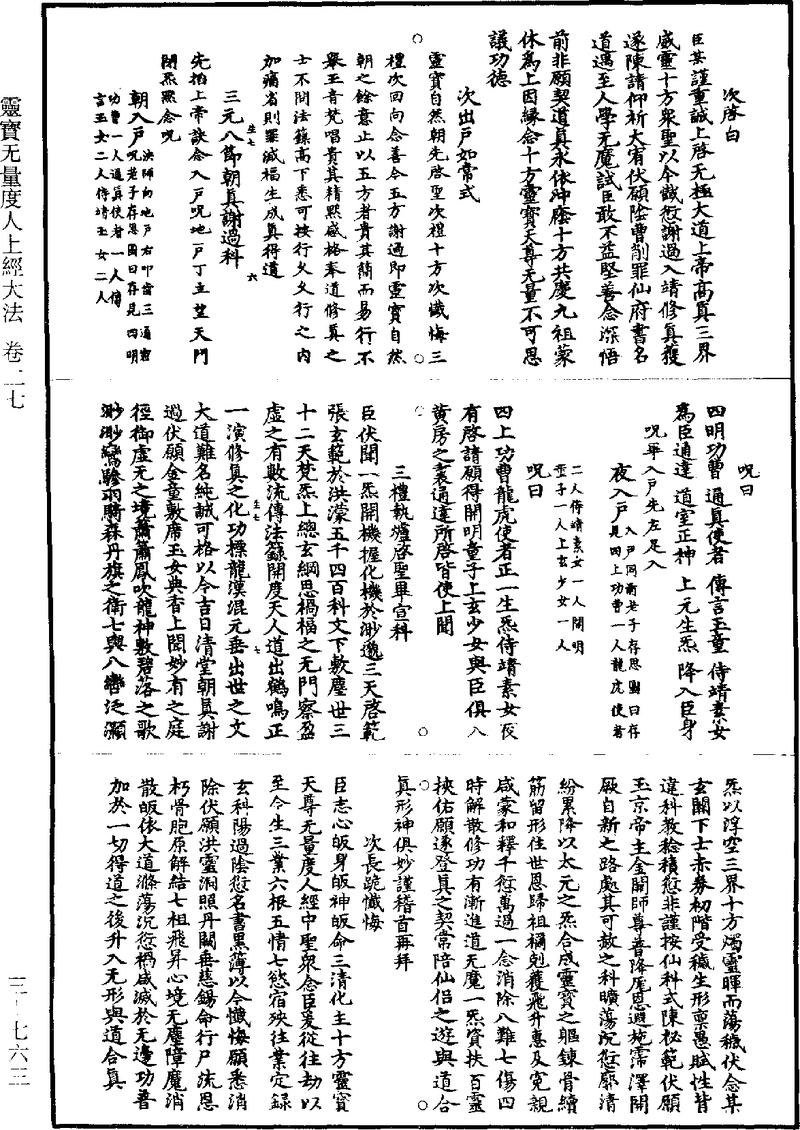 靈寶无量度人上經大法 卷二七
次啓白
臣某謹重誠上啓无極大道上帝高真三界
威靈十方衆聖以今懺愆謝過入靖修真獲
遂陳請仰祈大宥伏願陰曹削罪仙府書名
道邁至人學无魔試臣敢不益堅善念深悟
前非願契道真永依沖蔭十方共慶九祖蒙
休爲上因緣念十方靈寶天尊无量不可思
議功德
次出戶如常式
靈寶自然朝先啓聖次禮十方次懺悔三
禮次回向念善今五方謝過即靈寶自然
朝之餘意止以五方者貴其簡而易行不
舉玉音梵唱貴其精默感格奉道修真之
士不問法籙高下悉可按行久久行之內
加痛省則罪滅福生成真得道
三元八節朝真謝過科
先拍上帝訣念入戶呪地戶丁立望天門
閉炁默念呪
朝入戶 法師向地戶右叩齒三通密
呪老子存思圖曰存見四明
功曹一人通真使者一人傳
言玉女二人侍靖玉女二人
呪曰
四明功曹 通真使者 傳言玉童 侍靖素女
爲臣通達 道室正神 上元生炁 降入臣身
呪畢入戶先左足入
夜入戶 入戶同前老子存思圖曰存
見四上功曹一人龍虎使者
二人侍靖素女一人開明
童子一人上玄少女一人
呪曰
四上功曹龍虎使者正一生炁侍靖素女夜
有啓請願得開明童子上玄少女與臣俱入
黃房之裏通達所啓皆使上聞
三禮執爐啓聖畢宣科
臣伏聞一炁開機握化機於渺邈三天啓範
張玄範於洪濛五千四百科文下敷塵世三
十二天梵炁上總玄綱思禍福之无門察盈
虛之有數流傳法籙開度天人道出鶴鳴正
一演修真之化功標龍漢混元垂出世之文
大道難名純誠可格以今吉日清堂朝真謝
過伏願金童敷席玉女典香上聞妙有之庭
徑御虛无之境蕭蕭鳳吹龍神敷碧落之歌
渺渺鸞驂羽騎森丹旗之衛七輿八轡泛灝
炁以浮空三界十方燭靈暉而蕩穢伏念某
玄闕下士赤券初階受穢生形稟愚賦性皆
違科教稔積愆非謹按仙科式陳祕範伏願
玉京帝主金闕師尊普降庬恩遐施霈澤開
厥自新之路處其可赦之科曠蕩沉愆廓清
紛累降以太元之炁合成靈寶之軀鍊骨續
筋留形住世恩歸祖禰剋獲飛升惠及寃親
咸蒙和釋千愆萬過一念消除八難七傷四
時解散修功有漸進道无魔一炁資扶百靈
挾佑願遂登真之契常陪仙侶之遊與道合
真形神俱妙謹稽首再拜
次長跪懺悔
臣志心皈身皈神皈命三清化主十方靈寶
天尊无量度人經中聖衆念臣爰從往劫以
至今生三業六根五情七慾宿殃往業定錄
玄科陽過陰愆名書黑簿以今懺悔願悉消
除伏願洪靈洞照丹闕垂慈錫命行尸流恩
朽骨胞原解結七祖飛昇心境无塵障魔消
散皈依大道滌蕩沉愆禍咸滅於无邊功普
加於一切得道之後升入无形與道合真
三十七六三